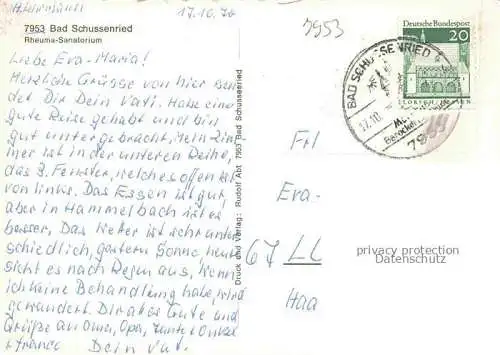 17.10.70
7953 Bad Schussenried
Rheuma-Sanatorium
7953
Deutsche Bundespost
20
LORSCH/HESSEN
BAD SCHUSSENRIED
17.10.
Liebe Eva-Maria!
Herzliche Grüsse von hier sen
det Dir Dein Vati. Habe eine
gute Reise gehabt und bin
gut untergebracht, Mein Zim
mer ist in der unteren Reihe,
das 3. Fenster, welches offen ist
von links. Das Essen ist gut,
aber in Hammelbach ist es
besser. Das Wetter ist sehr unter
schiedlich, gestern Sonne, heute
sieht es nach Regen aus, wenn
ich keine Behandlung habe, wird
gewandert. Dir alles Gute und
Grüße an Oma, Opa, Tante Onkel
+ Franco Dein Vati.
Druck und Verlag: Rudolf Abt 7953 Bad Schussenried
Frl
Eva-
67 LL
Haa
privacy protection
Datenschutz